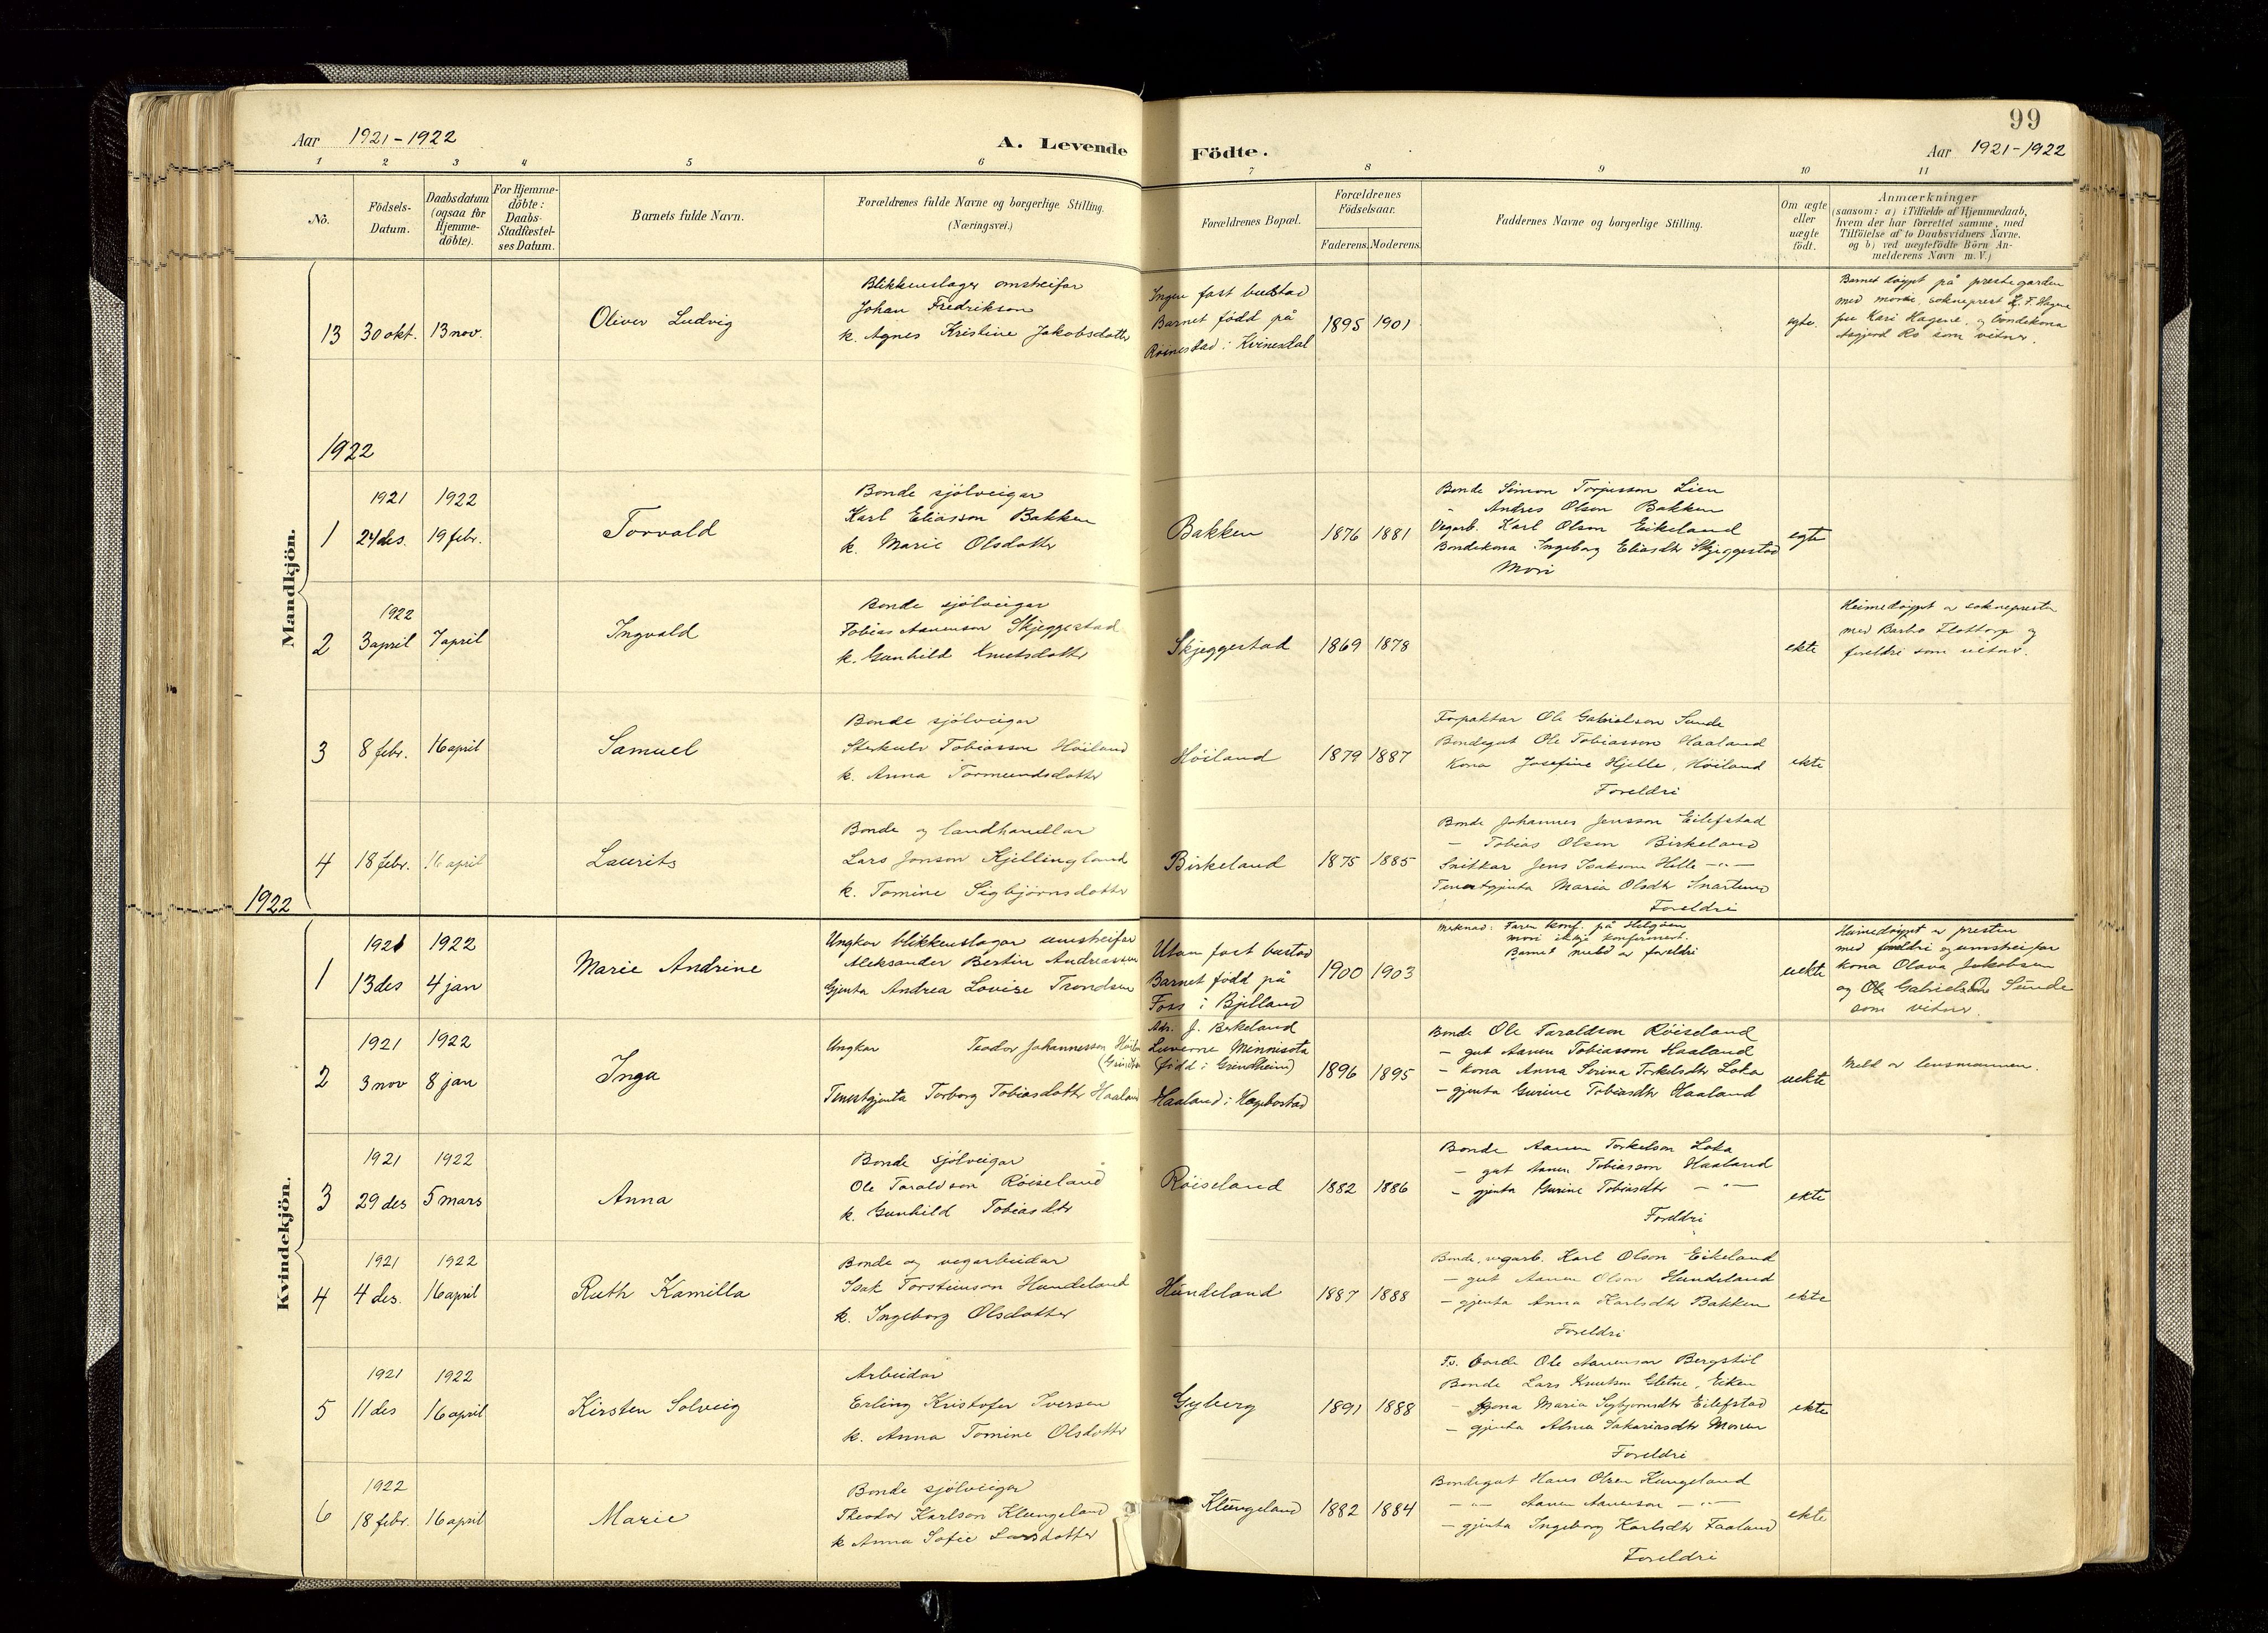 99
Aar 1921-1922
A. Levende Födte.
Aar 1921-1922
1 2 3 4 5 6 7 8 9 10 11
No.
Födsels-Datum.
Daabsdatum (ogsaa for Hjemme-döbte).
For Hjemme-döbte: Daabs-Stadfæstel-ses Datum.
Barnets fulde Navn.
Forældrenes fulde Navne og borgerlige Stilling.
(Næringsvei.)
Forældrenes Bopæl.
Forældrenes Födselsaar.
Faderens. Moderens.
Faddernes Navne og borgerlige Stilling.
Om ægte eller uægte födt.
Anmærkninger
(saasom: a) i Tilfælde af Hjemmedaab,
hvem der har forrettet samme, med
Tilföielse af to Daabsvidners Navne,
og b) ved uægtefödte Börn An-
melderens Navn m. V.)
Mandkjön.
13 30 okt. 13 nov.
Oliver Ludvig
Blikkenslager omstreifar
Johan Fredrikson
k. Agnes Kristine Jakobsdotter
Ingen fast bustad
Barnet född på
Röinestad i Kvinesdal
1895 1901
egte.
Barnet döypt på prestegarden
med mori, sokneprest F. Hagene
Kari Hagene og bondekona
Asgjerd Ro som vitner.
1922
1921 1922
1 24 des. 19 febr.
Torvald
Bonde sjölveigar
Karl Eliasson Bakken
k. Marie Olsdotter
Bakken
1876 1881
Bonde Simon Torjusson Lien
- Andres Olson Bakken
Vegarb. Karl Olson Eikeland
Bondekona Ingeborg Eliasdtr Skjeggestad
Mori
egte
1922
2 3 april 7 april
Ingvald
Bonde sjölveigar
Tobias Aanenson Skjeggestad
k. Gunhild Knutsdotter
Skjeggestad
1869 1878
ekte
Heimedöypt av soknepresten
med Barbro Flottorp og
foreldri som vitner.
3 8 febr. 16 april
Samuel
Bonde sjölveigar
Sterkulv Tobiasson Höiland
k. Anna Tormundsdotter
Höiland
1879 1887
Forpaktar Ole Gabrielson Sunde
Bondegut Ole Tobiasson Haaland
Kona Josefine Hjelle, Höiland
Foreldri
ekte
4 18 febr. 16 april
Laurits
Bonde og landhandlar
Lars Jonson Kjellingland
k. Tomine Sigbjörnsdotter
Birkeland
1875 1885
Bonde Johannes Jensson Eilefstad
- Tobias Olsen Birkeland
Snikkar Jens Isakson Helle -"-
Tenestgjenta Maria Olsdtr Snartemo
Foreldri
1922
Kvindekjön.
1921 1922
1 13 des 4 jan
Marie Andrine
Ungkar blikkenslagar umstreifar
Aleksander Bertin Andreassen
Gjenta Andrea Lovise Trondsen
Utan fast bustad
Barnet född på
Foss i Bjelland
1900 1903
Merknad: Faren konf. på Helgöen
mori ikkje konfirmert.
Barnet meld av foreldri
uekte
Heimedöypt av presten
med foreldri og umstreifar
kona Olava Jakobsen
og Ole Gabrielson Sunde
som vitner.
1921 1922
2 3 nov 8 jan
Inga
Ungkar Teodor Johannesson
Tenestgjenta Torborg Tobiasdotter Haaland
Adr. J. Birkeland
Luverne Minnisota
(född i Grindheim)
Haaland i Hægebostad
1896 1895
Bonde Ole Taraldson Röiseland
- gut Aanen Tobiasson Haaland
- kona Anna Serina Torkelsdtr Loka
- gjenta Gurine Tobiasdtr Haaland
uekte
Meld av lensmannen.
1921 1922
3 29 des 5 mars
Anna
Bonde sjölveigar
Ole Taraldson Röiseland
k. Gunhild Tobiasdtr
Röiseland
1882 1886
Bonde Aanen Torkelson Loka
- gut Aanen Tobiasson Haaland
- gjenta Gurine Tobiasdtr -"-
Foreldri
ekte
1921 1922
4 4 des. 16 april
Ruth Kamilla
Bonde og vegarbeidar
Isak Torsteinson Hundeland
k. Ingeborg Olsdotter
Hundeland
1887 1888
Bonde, vegarb. Karl Olson Eikeland
- gut Aanen Olson Hundeland
- gjenta Anna Karlsdtr Bakken
Foreldri
ekte
1921 1922
5 11 des 16 april
Kirsten Solveig
Arbeidar
Erling Kristofer Iversen
k. Anna Tomine Olsdotter
Gyberg
1891 1888
Fv. bonde Ole Aanenson Bergstöl
Bonde Lars Knutson Gletne, Eiken
- kona Maria Sigbjornsdtr Eilefstad
- gjenta Alma Sakariasdtr Monen
Foreldri
ekte
1922
6 18 febr. 16 april
Marie
Bonde sjölveigar
Theodor Karlson Klungeland
k Anna Sofie Larsdotter
Klungeland
1882 1884
Bondegut Hans Olsen Klungeland
-"- Aanen Aanenson -"-
- gjenta Ingeborg Karlsdtr Faaland
Foreldri
ekte